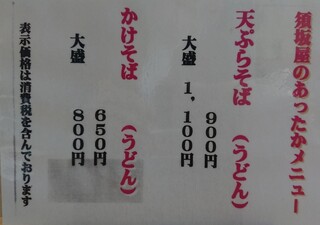 須坂屋のあったかメニュー
天ぷらそば(うどん)
900円
大盛 1,100円
かけそば(うどん)
650円
大盛 800円
表示価格は消費税を含んでおります